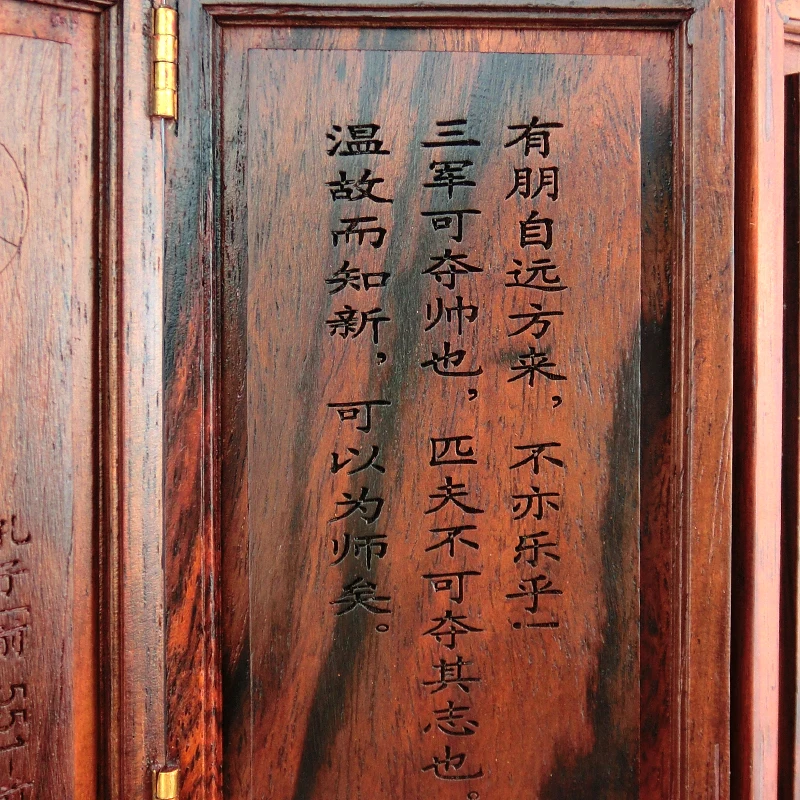 有朋自远方来，不亦乐乎！
三军可夺帅也，匹夫不可夺其志也。
温故而知新，可以为师矣。
孔子(前551-